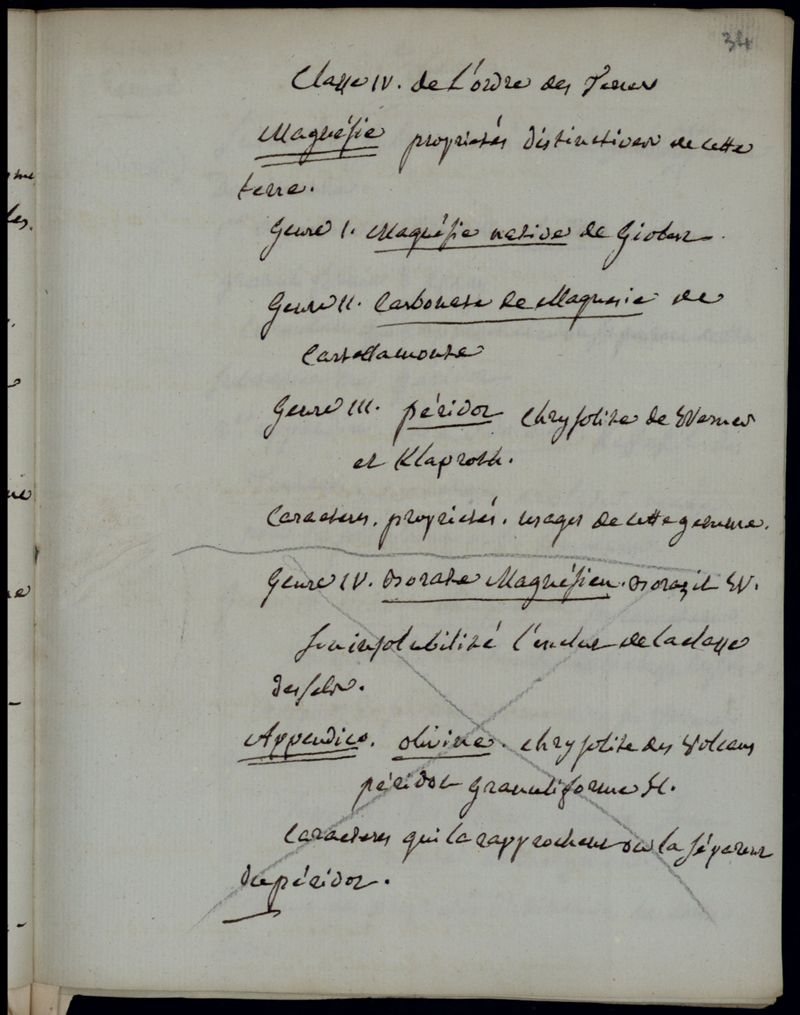 34
Classe IV. de L'ordre des Terres
Magnésie propriétés distinctives de cette
terre.
Genre I. Magnésie native de Giobert
Genre II. Carbonate de Magnesie de
Castellamonte
Genre III. péridot chrysolite de Werner
et Klaproth.
Caracteres. propriétés. usages de cette gemme.
Genre IV. Borate Magnésien. Borazit W.
son insolubilité l'exclut de la classe
des sels.
Appendice. olivine. chrysolite des Volcans
péridot granuliforme H.
Caracteres qui la rapprochent ou la séparent
du péridot.